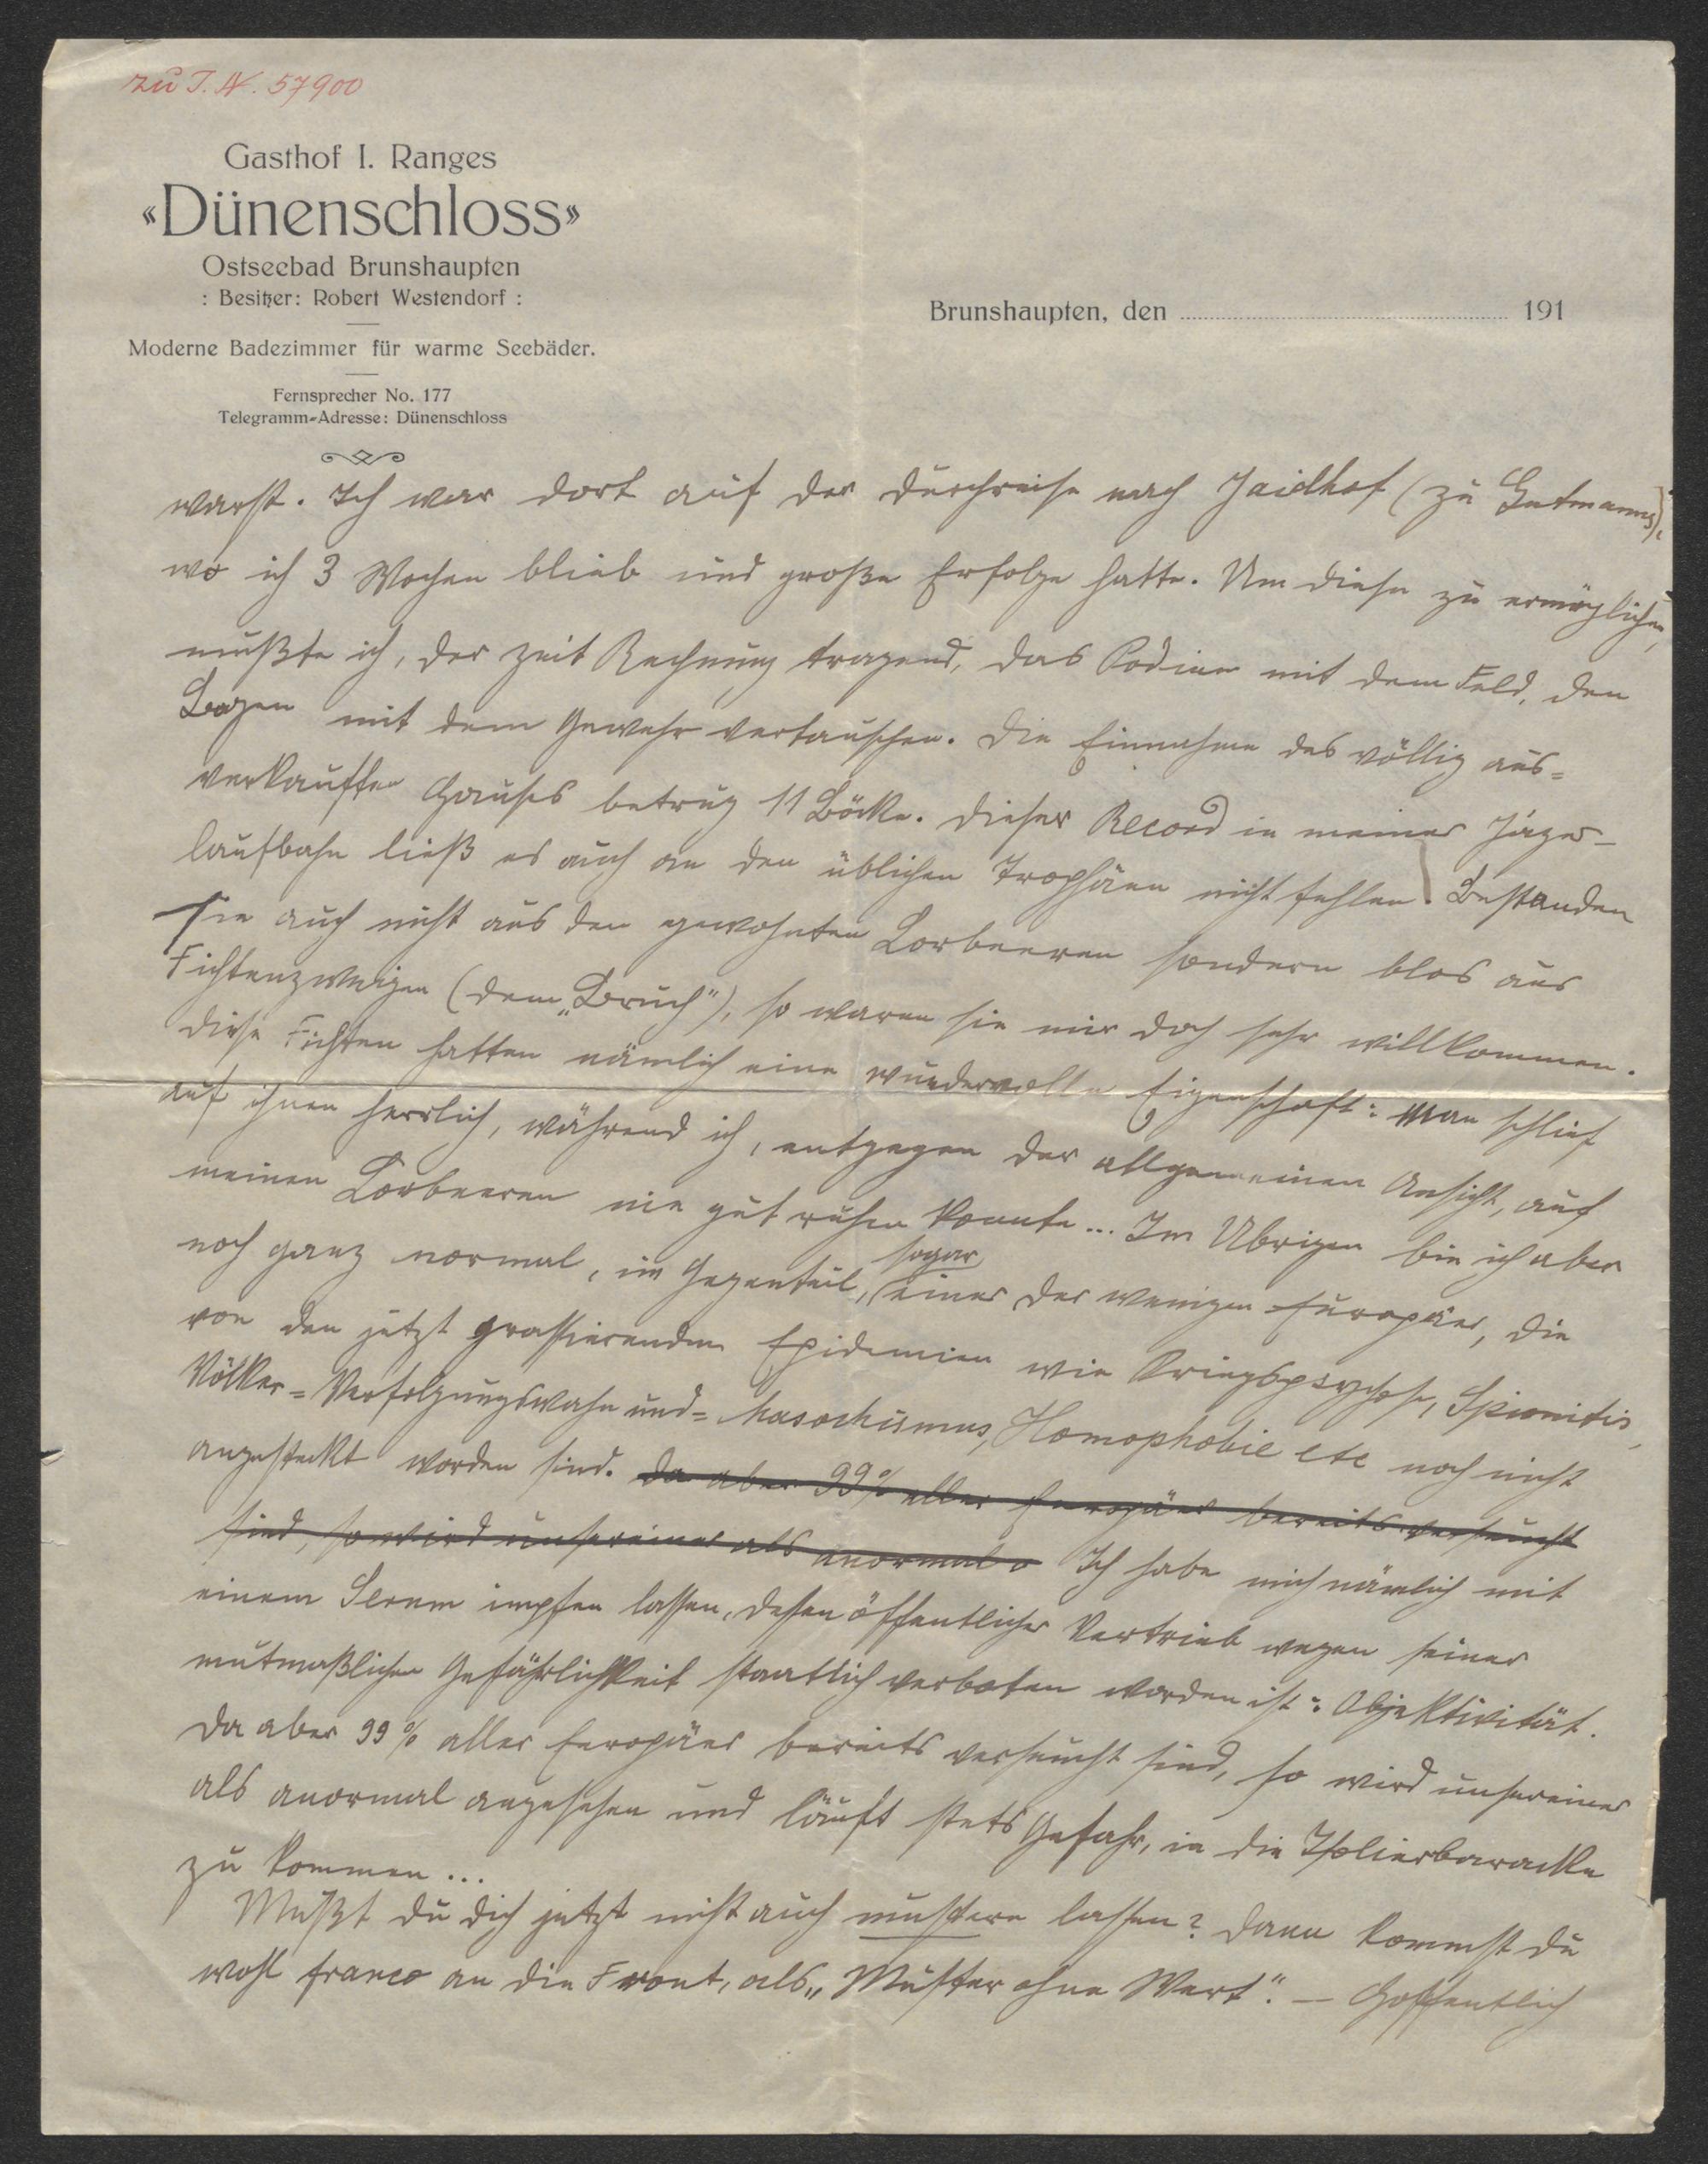 zu I. N. 57900
Gasthof I. Ranges
«Dünenschloss»
Ostseebad Brunshaupten
: Besitzer: Robert Westendorf :
Moderne Badezimmer für warme Seebäder.
Fernsprecher No. 177
Telegramm-Adresse: Dünenschloss
Brunshaupten, den ........ 191
warst. Ich war dort auf der Durchreise nach Jaidhof (zu Gutmanns),
wo ich 3 Wochen blieb und große Erfolge hatte. Um diese zu ermöglichen,
mußte ich, der Zeit Rechnung tragend, das Podium mit dem Feld, den
Bogen mit dem Gewehr vertauschen. Die Einnahme des völlig aus=
verkauften Hauses betrug 11 Böcke. Dieser Record in meiner Jäger-
laufbahn ließ es auch an den üblichen Trophäen nicht fehlen. Bestanden
sie auch nicht aus den gewohnten Lorbeeren sondern blos aus
Fichtenzweigen (dem „Bruch"), so waren sie mir doch sehr willkommen.
Diese Fichten hatten nämlich eine wundervolle Eigenschaft: man schlief
auf ihnen herrlich, während ich, entgegen der allgemeinen Ansicht, auf
meinen Lorbeeren nie gut ruhen konnte... Im Übrigen bin ich aber
noch ganz normal, im Gegenteil, sogar einer der wenigen Europäer, die
von den jetzt grassierenden Epidemien wie Kriegspsychose, Spionitis,
Völker=Verfolgungswahn und=Masochismus, Homophobie etc noch nicht
angesteckt worden sind. Da aber 99% aller Europäer bereits verseucht
sind, so wird unsereiner als anormal a Ich habe mich nämlich mit
einem Serum impfen lassen, dessen öffentlicher Vertrieb wegen seiner
mutmaßlichen Gefährlichkeit staatlich verboten worden ist: Objektivität.
Da aber 99% aller Europäer bereits verseucht sind, so wird unsereiner
als anormal angesehen und läuft stets Gefahr, in die Isolierbaracke
zu kommen...
Mußt du dich jetzt nicht auch mustern lassen? Dann kommst du
wohl franco an die Front, als „Muster ohne Wert". — Hoffentlich